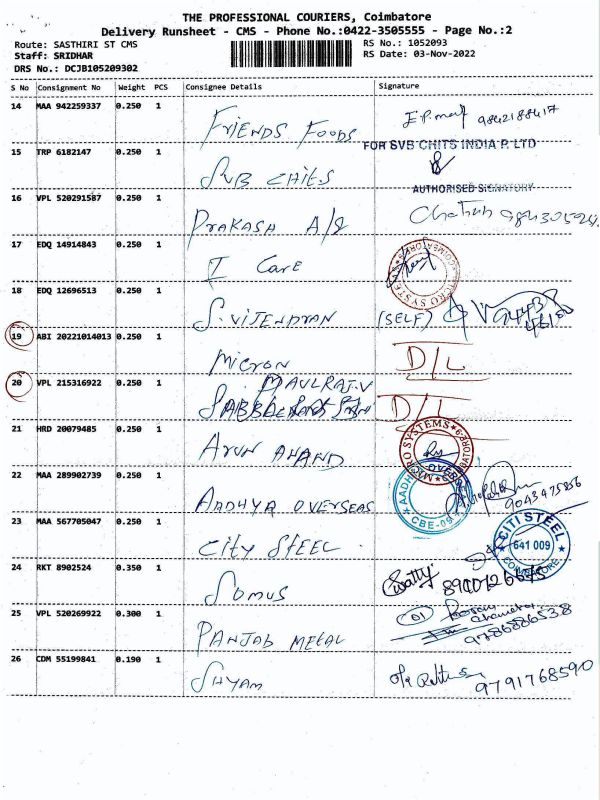 THE PROFESSIONAL COURIERS, Coimbatore
Delivery Runsheet - CMS - Phone No.:0422-3505555 - Page No.:2
Route: SASTHIRI ST CMS
RS No.: 1052093
Staff: SRIDHAR
RS Date: 03-Nov-2022
DRS No.: DCJB105209302
S No Consignment No Weight PCS Consignee Details Signature
14 MAA 942259337 0.250 1 FRIENDS FOODS 9842188417
FOR SVB CHITS INDIA P. LTD
15 TRP 6182147 0.250 1 SVB CHITS
AUTHORISED SIGNATORY
16 VPL 520291587 0.250 1 PRAKASH A/S
17 EDQ 14914843 0.250 1 I Care
MICRO SYSTEMS COIMBATORE
18 EDQ 12696513 0.250 1 S. VIJENDRAN (SELF)
19 ABI 20221014013 0.250 1 MICRON D/L
20 VPL 215316922 0.250 1 MAULRAJ.V D/L
21 HRD 20079485 0.250 1 ARUN ANAND
MICRO SYSTEMS
22 MAA 289902739 0.250 1 AADHYA OVERSEAS 9043475856
AADHYA OVERSEAS CBE-09
23 MAA 567705047 0.250 1 CITY STEEL
CITI STEEL 641 009 COIMBATORE
24 RKT 8902524 0.350 1 SOMUS Swatty
25 VPL 520269922 0.300 1 PANJAB METAL 9786886538
26 CDM 55199841 0.190 1 SHYAM 9791768590